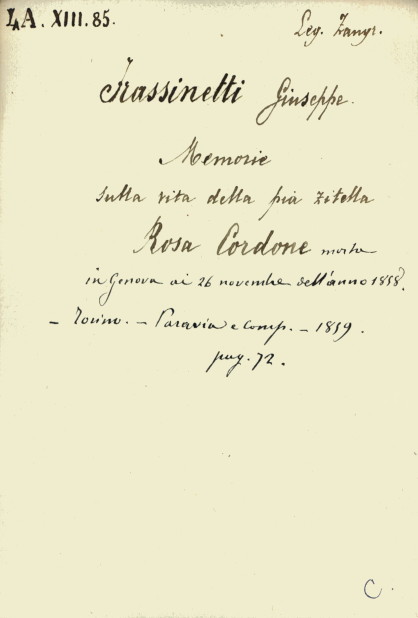 LA. XIII. 85.
Leg. Zangr.
Frassinetti Giuseppe.
Memorie
sulla vita della pia zitella
Rosa Cordone morta
in Genova ai 26 novembre dell'anno 1858.
- Torino. - Paravia e Comp. - 1859.
pag. 72.
C.